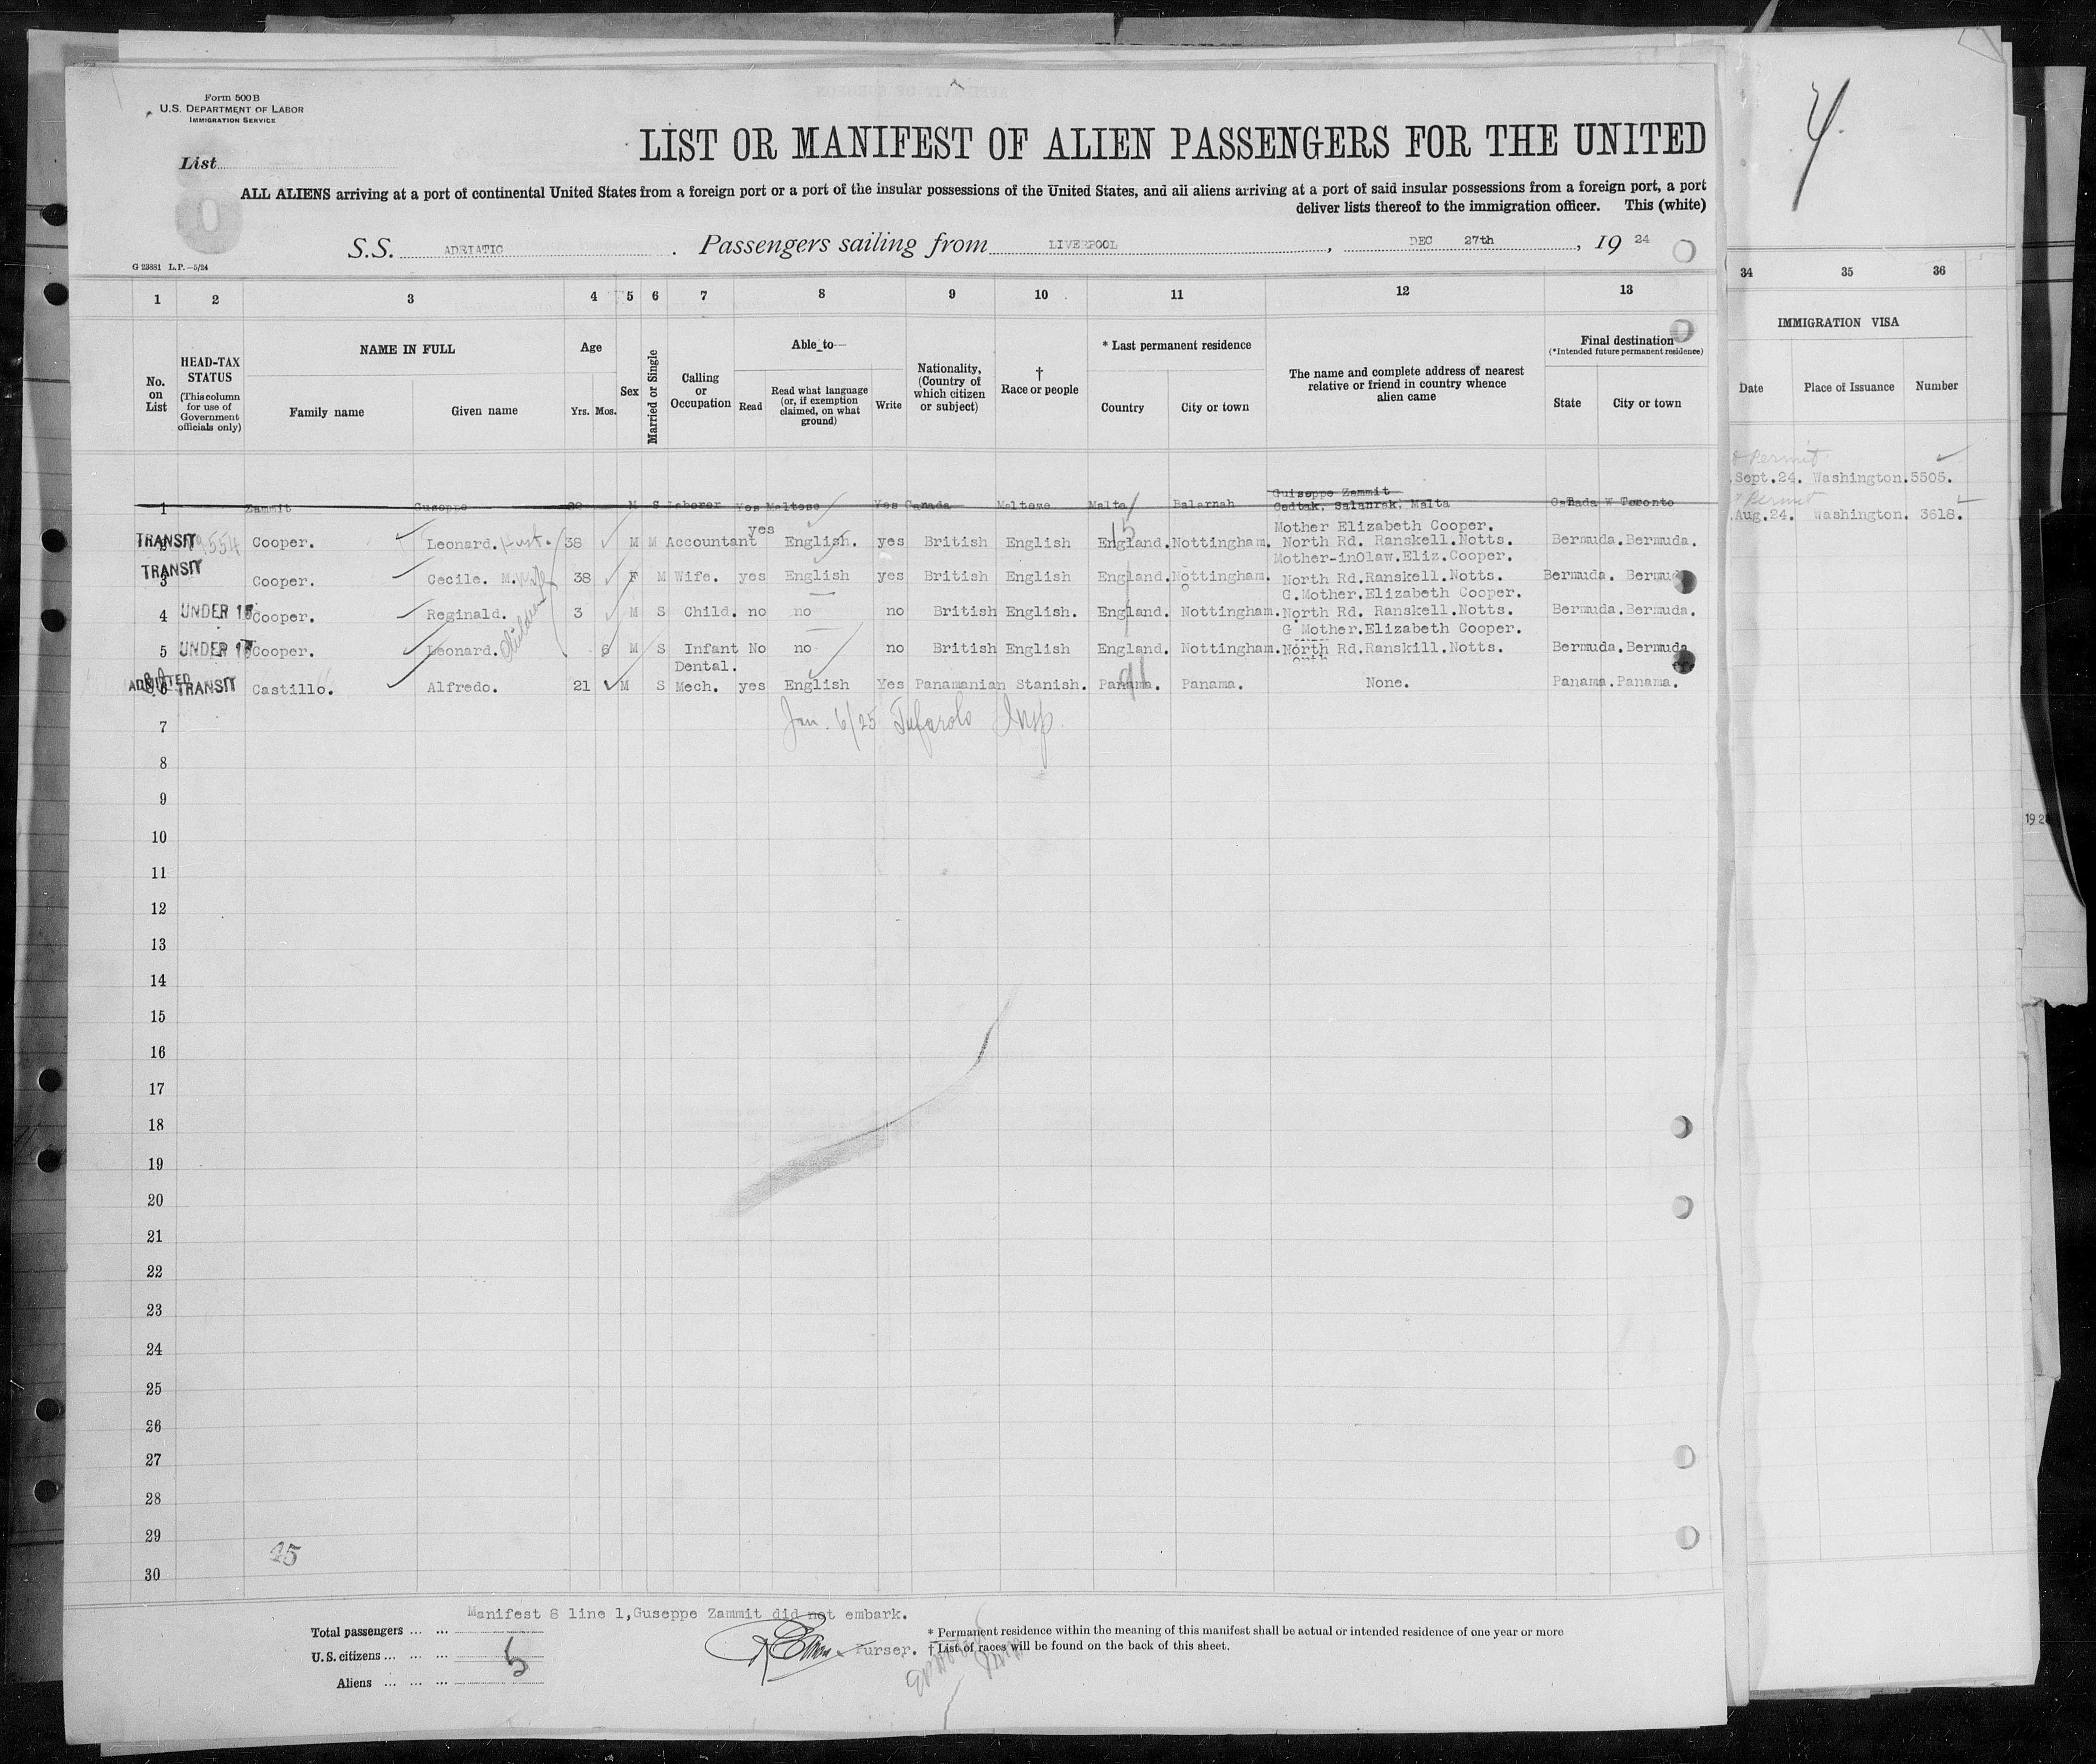 Form 500 B
U.S. DEPARTMENT OF LABOR
IMMIGRATION SERVICE
List
LIST OR MANIFEST OF ALIEN PASSENGERS FOR THE UNITED
ALL ALIENS arriving at a port of continental United States from a foreign port or a port of the insular possessions of the United States, and all aliens arriving at a port of said insular possessions from a foreign port, a port
deliver lists thereof to the immigration officer. This (white)
S.S. ADRIATIC. Passengers sailing from LIVERPOOL, DEC 27th, 19 24
G 23881 L.P.—5/24
4
1 2 3 4 5 6 7 8 9 10 11 12 13
34 35 36
No. on List
HEAD-TAX STATUS (This column for use of Government officials only)
NAME IN FULL
Family name Given name
Age
Yrs. Mos.
Sex
Married or Single
Calling or Occupation
Able to—
Read
Read what language (or, if exemption claimed, on what ground)
Write
Nationality, (Country of which citizen or subject)
† Race or people
* Last permanent residence
Country City or town
The name and complete address of nearest relative or friend in country whence alien came
Final destination
(*Intended future permanent residence)
State City or town
IMMIGRATION VISA
Date Place of Issuance Number
Permit
Sept.24. Washington. 5505.
Permit
Aug.24. Washington. 3618.
Guiseppe Zammit
1 Zammit Guseppe M S Laborer Yes Maltese Yes Canada Maltese Malta Balarnah Cedtak. Salanrak. Malta Canada W Toronto
yes Mother Elizabeth Cooper.
TRANSIT 2 Cooper. Leonard. 38 M M Accountant English. yes British English England. Nottingham. North Rd. Ranskell. Notts. Bermuda. Bermuda.
Mother-in0law.Eliz.Cooper.
TRANSIT 3 Cooper. Cecile. M. Wife 38 F M Wife. yes English yes British English England. Nottingham. North Rd.Ranskell.Notts. Bermuda. Bermuda
G.Mother.Elizabeth Cooper.
4 UNDER 16 Cooper. Reginald. 3 M S Child. no no no British English. England. Nottingham. North Rd. Ranskell.Notts. Bermuda.Bermuda.
Children
G Mother.Elizabeth Cooper.
5 UNDER 16 Cooper. Leonard. 6 M S Infant No no no British English England. Nottingham. North Rd.Ranskill.Notts. Bermuda.Bermuda
Dental.
ADMITTED 6 TRANSIT Castillo. Alfredo. 21 M S Mech. yes English Yes Panamanian Stanish. Panama. Panama. None. Panama.Panama.
Jan. 6/25 Tufarolo Insp.
7
8
9
10
11
12
13
14
15
16
17
18
19
20
21
22
23
24
25
26
27
28
29
30
Manifest 8 line 1,Guseppe Zammit did not embark.
Total passengers ... ...
U.S. citizens ... ... ... 5
Aliens ... ... ...
Purser.
* Permanent residence within the meaning of this manifest shall be actual or intended residence of one year or more
† List of races will be found on the back of this sheet.